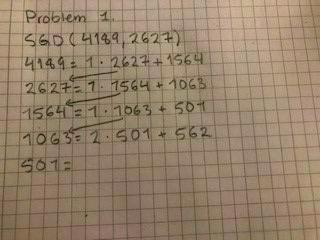 Problem 1.
SGD (4189, 2627)
4189 = 1 · 2627 + 1564
2627 = 1 · 1564 + 1063
1564 = 1 · 1063 + 501
1063 = 2 · 501 + 562
501 =